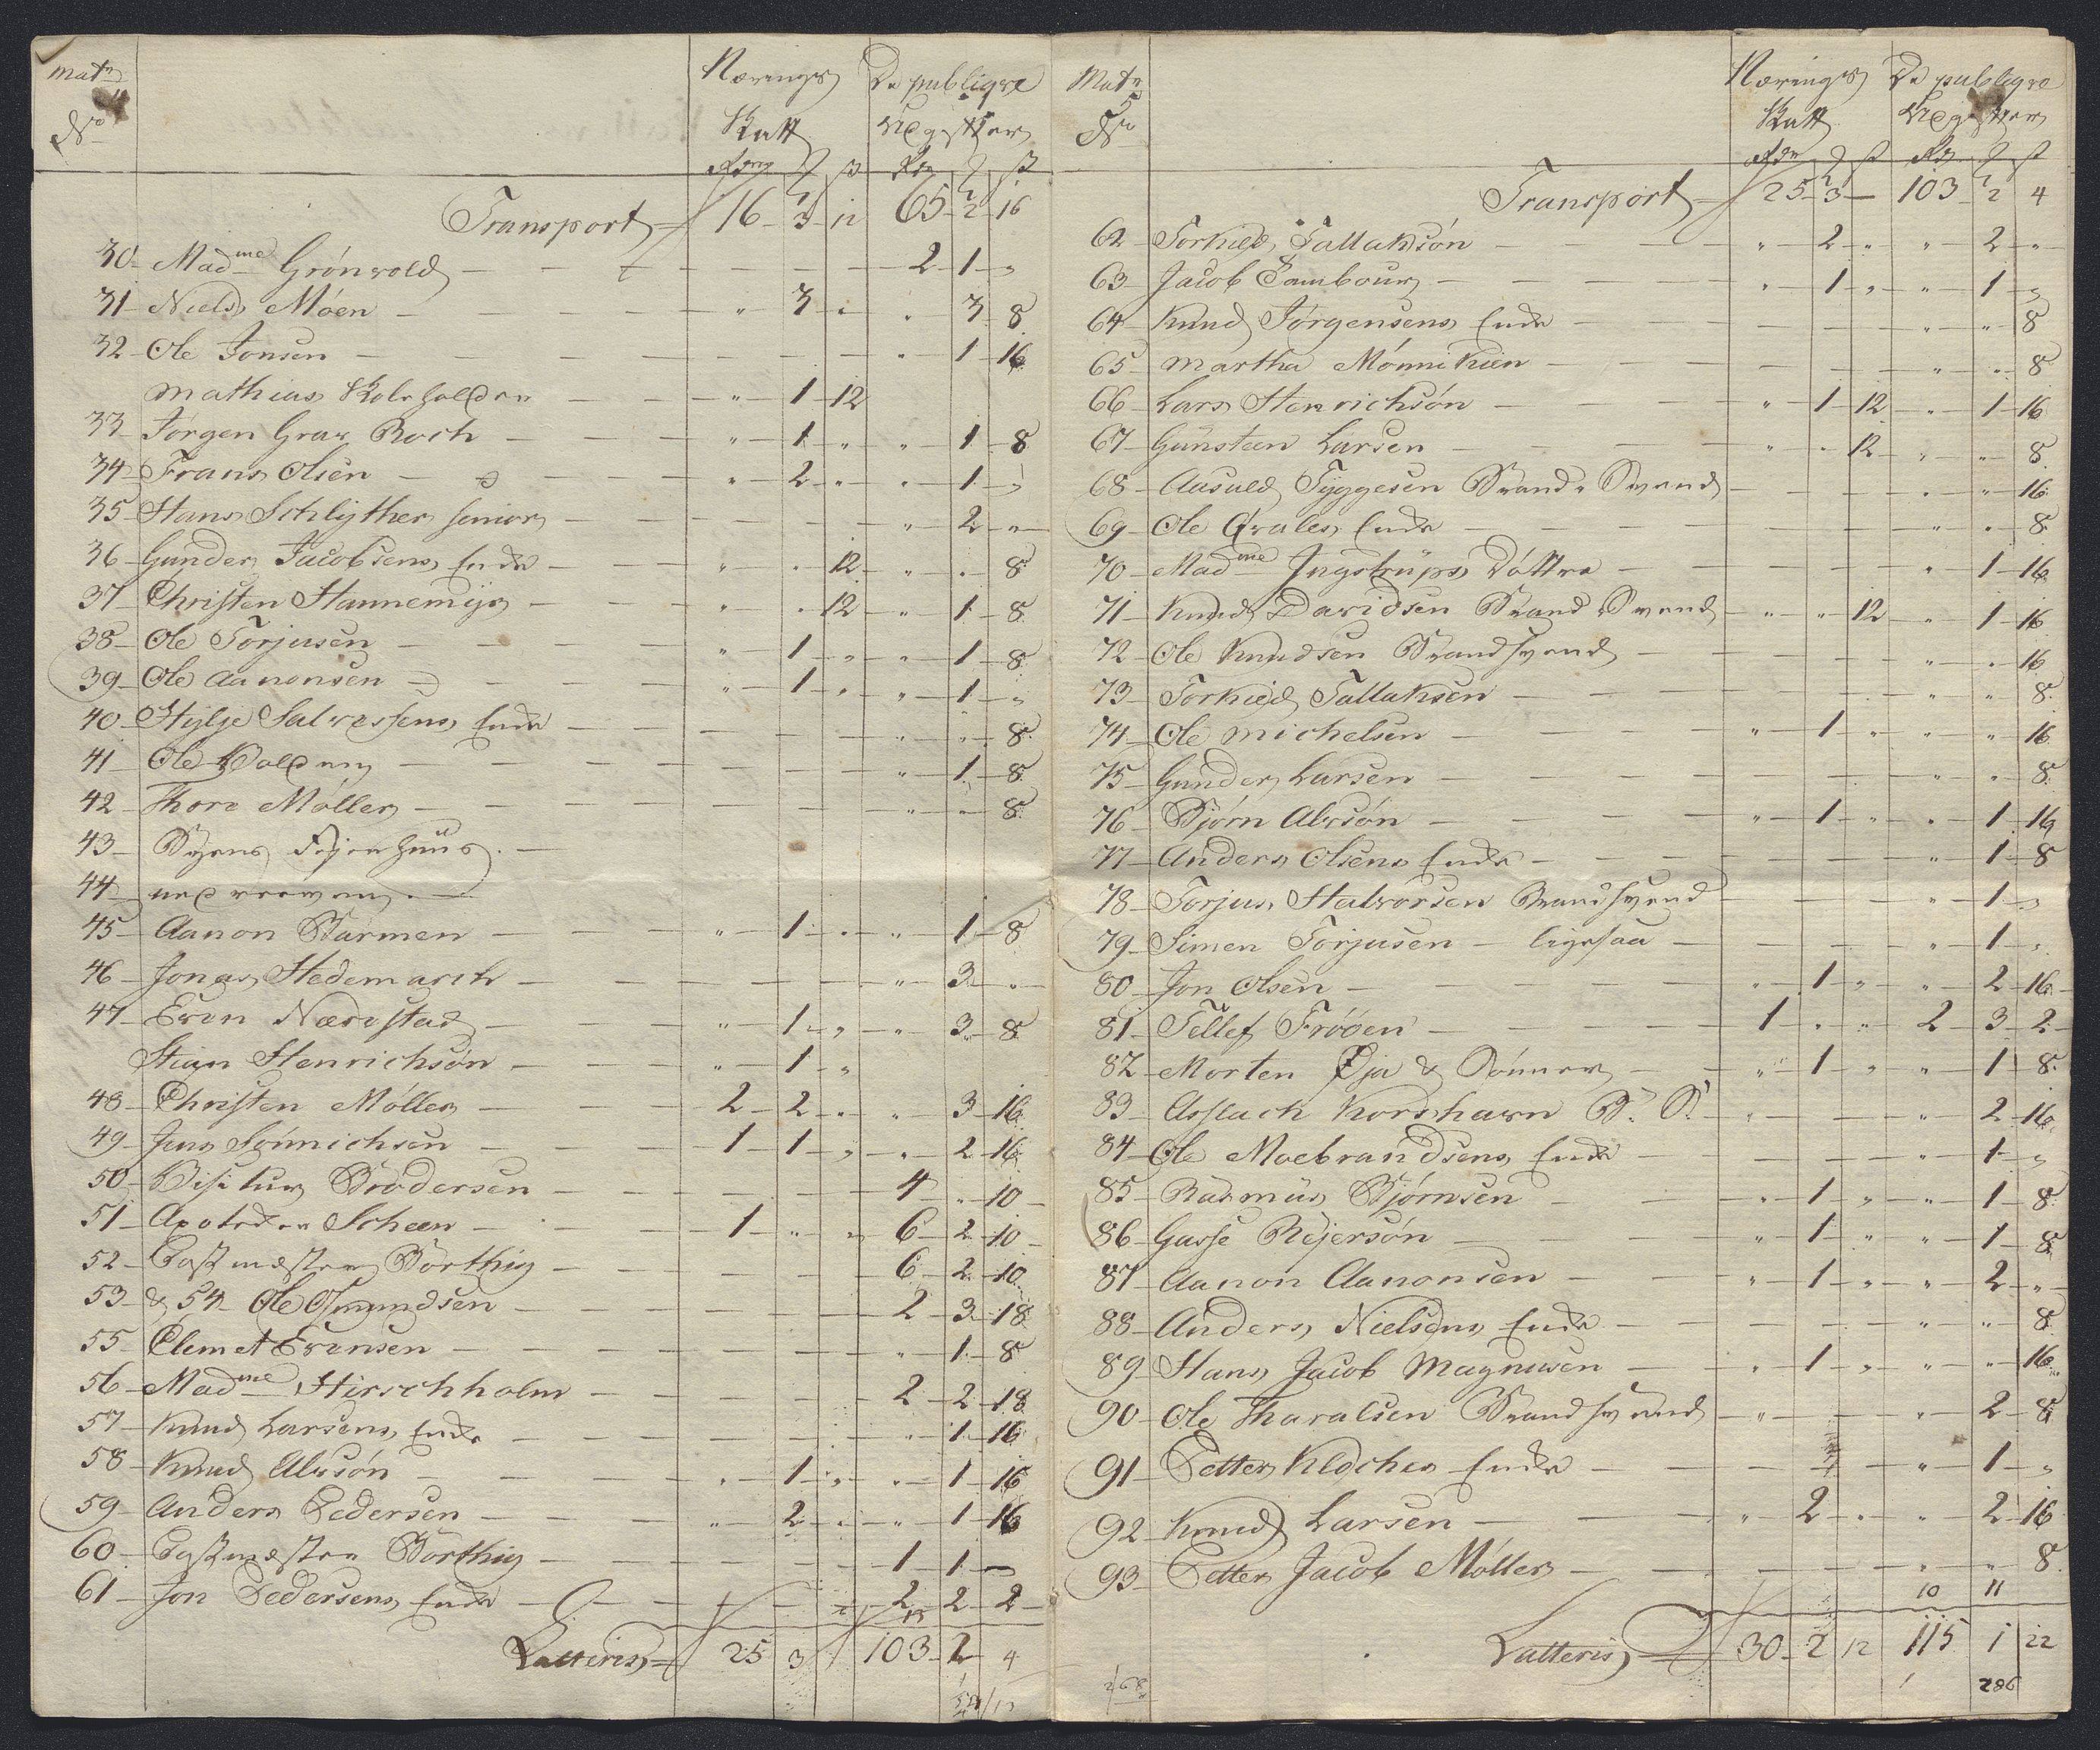 Matr
No
Nærings
Skatt
De publiqve
Utgifter
Transport 16 3 12 65 2 16
30 Madme Grönvold 2 1 "
31 Niels Möen " 3 " " 3 8
32 Ole Jonsen " 1 16
Mathias " 1 12
33 Jörgen Grav Roch " 1 " " 1 8
34 Frans Olsen " 2 " " 1 "
35 Hans Schlyther senior " 2 "
36 Gunder Jacobsens Enke " " 12 " " 8
37 Christen Hannemyr " " 12 " 1 8
38 Ole Torjusen " 1 " " 1 8
39 Ole Aanonsen " 1 " " 1 "
40 Hylje Salvesens Enke " " 8
41 Ole " 1 8
42 Thore Möller " " 8
43 Byens
44
45 Aanon Barmen " 1 " " 1 8
46 Jonas Hedemarch " 3 "
47 Even Nærestad " 1 " " 3 8
Stian Henrichsön " 1 "
48 Christen Möller 2 2 " " 3 16
49 Jens Sönnichsen 1 1 " " 2 16
50 Visiteur Brodersen 4 " 10
51 Apoteker Scheen 1 " " 6 2 10
52 Postmester Börthig 6 2 10
53 & 54 Ole Osmundsen 2 3 18
55 Clemet Evensen " 1 8
56 Madme Hirschholm 2 2 18
57 Knud Larsens Enke " 1 16
58 Knud Alvsön " 1 " " 1 16
59 Anders Pedersen " 2 " " 1 16
60 Postmester Börthig 1 1
61 Jon Pedersens Enke 2 2 2
Latteris 25 3 103 2 4
Matr
No
Nærings
Skatt
De publiqve
Utgifter
Transport 25 3 103 2 4
62 Torkild Tallaksön " 2 " " 2 "
63 Jacob Tambour " 1 " " 1 "
64 Knud Jörgensens Enke " " 8
65 Martha Mönnikien " " 8
66 Lars Henrichsön " 1 12 " 1 16
67 Gunsteen Larsen " " 12 " " 8
68 Aasuld Tyggesen Brand Svend " " 16
69 Ole Enke " " 8
70 Madme Ingstrups Döttre " 1 16
71 Knud Davidsen Brand Svend " " 12 " 1 16
72 Ole Knudsen Brandsvend " " 16
73 Torkield Tallaksen " " 8
74 Ole Michelsen " 1 " " " 16
75 Gunder Larsen " " 8
76 Björn Alvsön " 1 " " 1 16
77 Anders Olsens Enke " 1 8
78 Torjus Halvorsen Brandsvend " 1 "
79 Simen Torjusen ligesaa " 1 "
80 Jon Olsen " 1 " " 2 16
81 Tellef Frööen 1 " " 2 3 2
82 Morten Öja & Sönner " 1 " " 1 8
83 Asslach Korshavn B: S: " " 2 16
84 Ole Moebrandsens Enke " 1 "
85 Rasmus Björnsen " 1 " " 1 8
86 Gusse Rejersön " 1 " " 1 8
87 Aanon Aanonsen " 1 " " 2 "
88 Anders Nielsens Enke " " 8
89 Hans Jacob Magnusen " 1 " " " 16
90 Ole Tharalsen Brandsvend " " 2 8
91 Petter Klochers Enke " 1 "
92 Knud Larsen " 2 " " 2 16
93 Petter Jacob Möller " " 8
10 11
Latteris 30 2 12 115 1 22
286